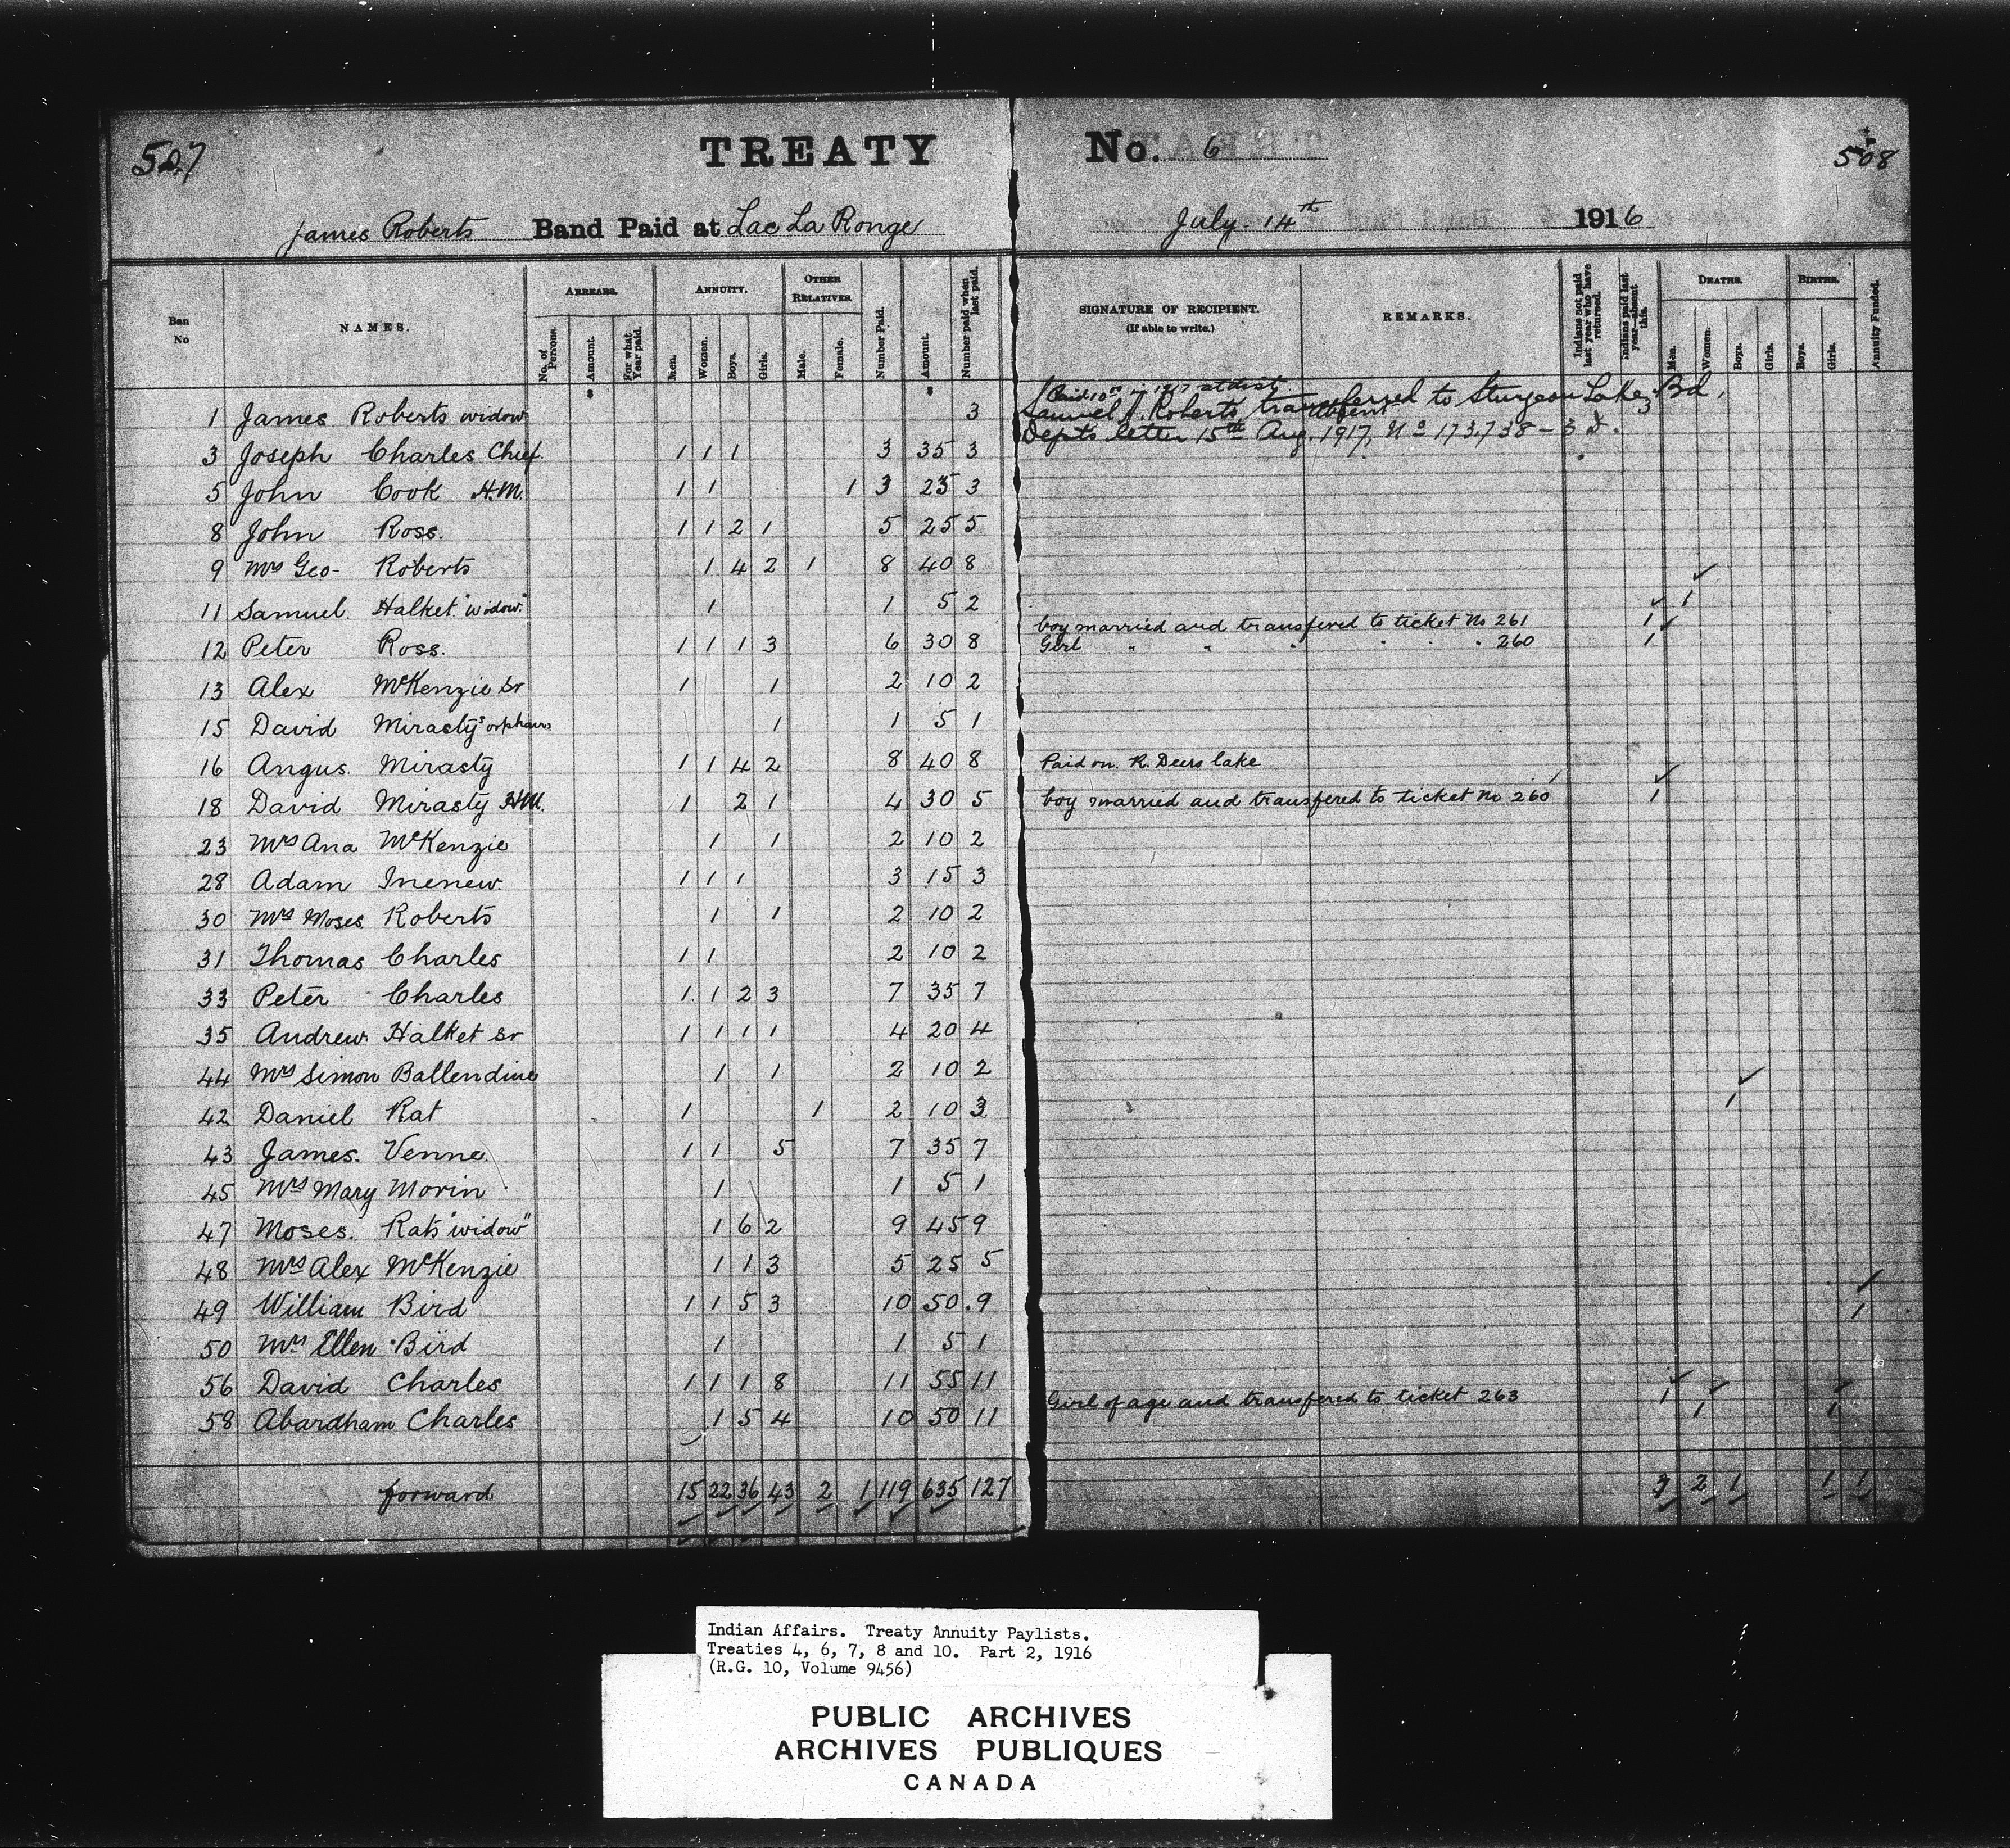 507 TREATY No. 6 508
James Roberts Band Paid at Lac La Ronge July 14th 1916
Ban No
NAMES.
ARREARS.
No. of Persons.
Amount.
For what Year paid.
ANNUITY.
Men.
Women.
Boys.
Girls.
OTHER RELATIVES.
Male.
Female.
Number Paid.
Amount
Number paid when last paid.
SIGNATURE OF RECIPIENT.
(If able to write.)
REMARKS.
Indians not paid last year who have returned.
Indians paid last year—absent this.
DEATHS.
Men.
Women.
Boys.
Girls.
BIRTHS.
Boys.
Girls.
Annuity Funded.
$ $
Paid in 1917 at dist
1 James Roberts widow 3 Samuel J. Roberts transferred to Sturgeon Lake Bd. absent 3
Depts letter 15th Aug. 1917, No 173.738 – 3
3 Joseph Charles Chief. 1 1 1 3 35 3
5 John Cook H.M. 1 1 1 3 25 3
8 John Ross. 1 1 2 1 5 25 5
9 Mrs Geo- Roberts 1 4 2 1 8 40 8
11 Samuel Halket "widow" 1 1 5 2 1
boy married and transfered to ticket No 261 1
12 Peter Ross. 1 1 1 3 6 30 8 Girl " " " " " " 260 1
13 Alex McKenzie Sr 1 1 2 10 2
15 David Mirasty's orphans 1 1 5 1
16 Angus Mirasty 1 1 4 2 8 40 8 Paid on R. Deers lake
18 David Mirasty H.M. 1 2 1 4 30 5 boy married and transfered to ticket No 260 1
23 Mrs Ana McKenzie 1 1 2 10 2
28 Adam Inenew 1 1 1 3 15 3
30 Mrs Moses Roberts 1 1 2 10 2
31 Thomas Charles 1 1 2 10 2
33 Peter Charles 1 1 2 3 7 35 7
35 Andrew Halket Sr 1 1 1 1 4 20 4
44 Mrs Simon Ballendine 1 1 2 10 2
42 Daniel Rat 1 1 2 10 3 1
43 James Venne 1 1 5 7 35 7
45 Mrs Mary Morin 1 1 5 1
47 Moses Rat's "widow" 1 6 2 9 45 9
48 Mrs Alex McKenzie 1 1 3 5 25 5
49 William Bird 1 1 5 3 10 50 9 1
50 Mrs Ellen Bird 1 1 5 1
56 David Charles 1 1 1 8 11 55 11
Girl of age and transfered to ticket 263 1
58 Abardham Charles 1 5 4 10 50 11 1 1
forward 15 22 36 43 2 1 119 635 127 2 1 1 1
Indian Affairs. Treaty Annuity Paylists.
Treaties 4, 6, 7, 8 and 10. Part 2, 1916
(R.G. 10, Volume 9456)
PUBLIC ARCHIVES
ARCHIVES PUBLIQUES
CANADA